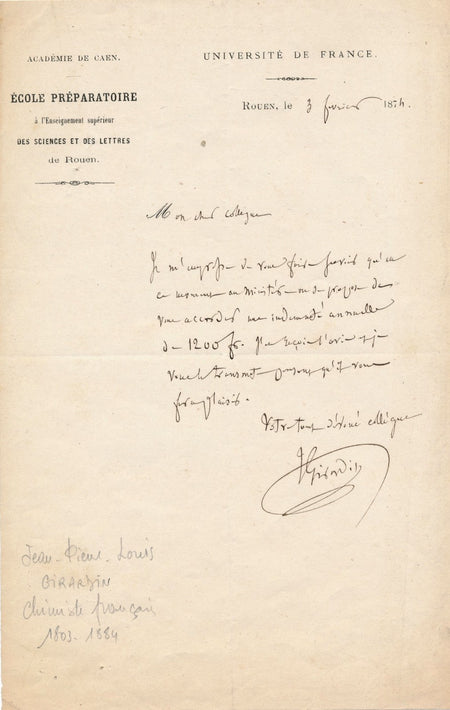 ACADÉMIE DE CAEN.
ÉCOLE PRÉPARATOIRE
à l'Enseignement supérieur
DES SCIENCES ET DES LETTRES
de Rouen.
UNIVERSITÉ DE FRANCE.
ROUEN, le 3 février 1874.
Mon cher collègue
Je m'empresse de vous faire savoir qu'en
ce moment au Ministère on se propose de
vous accorder une indemnité annuelle
de 1200 fr. J'en reçois l'avis et je
vous le transmets pensant qu'il vous
fera plaisir.
Votre tout dévoué collègue
J Girardin
Jean-Pierre-Louis
GIRARDIN
Chimiste français
1803-1884